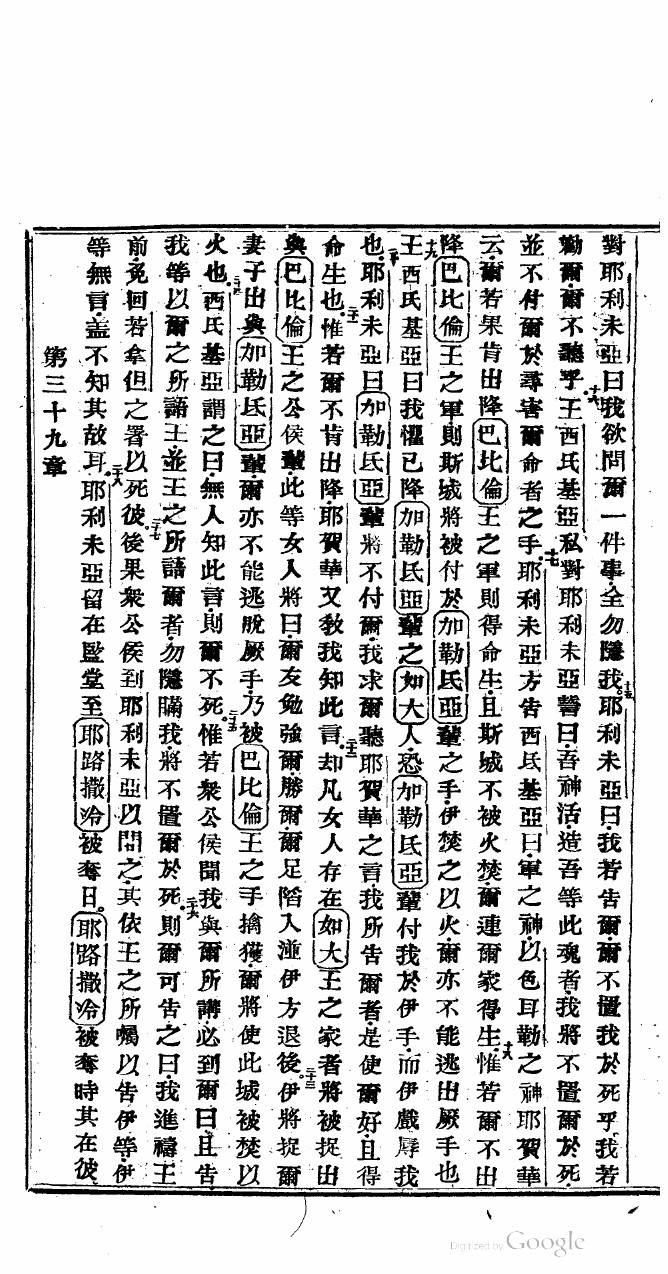 對耶利未亞曰我欲問爾一件事全勿隱我十五耶利未亞曰我若告爾爾不置我於死乎我若
勸爾爾不聽乎十六王西氏基亞私對耶利未亞誓曰吾神活造吾等此魂者我將不置爾於死
並不付爾於尋害爾命者之手十七耶利未亞方告西氏基亞曰軍之神以色耳勒之神耶賀華
云爾若果肯出降巴比倫王之軍則得命生且斯城不被火焚爾連爾家得生十八惟若爾不出
降巴比倫王之軍則斯城將被付於加勒氐亞輩之手伊焚之以火爾亦不能逃出厥手也
十九王西氏基亞曰我懼已降加勒氐亞輩之如大人恐加勒氐亞輩付我於伊手而伊戲辱我
也二十耶利未亞曰加勒氐亞輩將不付爾我求爾聽耶賀華之言我所告爾者是使爾好且得
命生也二十一惟若爾不肯出降耶賀華又教我知此言二十二却凡女人存在如大王之家者將被捉出
與巴比倫王之公侯輩此等女人將曰爾友勉強爾勝爾爾足陷入溼伊方退後二十三伊將捉爾
妻子出與加勒氐亞輩爾亦不能逃脫厥手乃被巴比倫王之手擒獲爾將使此城被焚以
火也二十四西氏基亞謂之曰無人知此言則爾不死二十五惟若衆公侯聞我與爾所講必到爾曰且告
我等以爾之所語王並王之所語爾者勿隱瞞我將不置爾於死二十六則爾可告之曰我進禱王
前免回若拿但之署以死彼二十七後果衆公侯到耶利未亞以問之其依王之所囑以告伊等伊
等無言蓋不知其故耳二十八耶利未亞留在監堂至耶路撒冷被奪日耶路撒冷被奪時其在彼
第三十九章
Digitized by Google